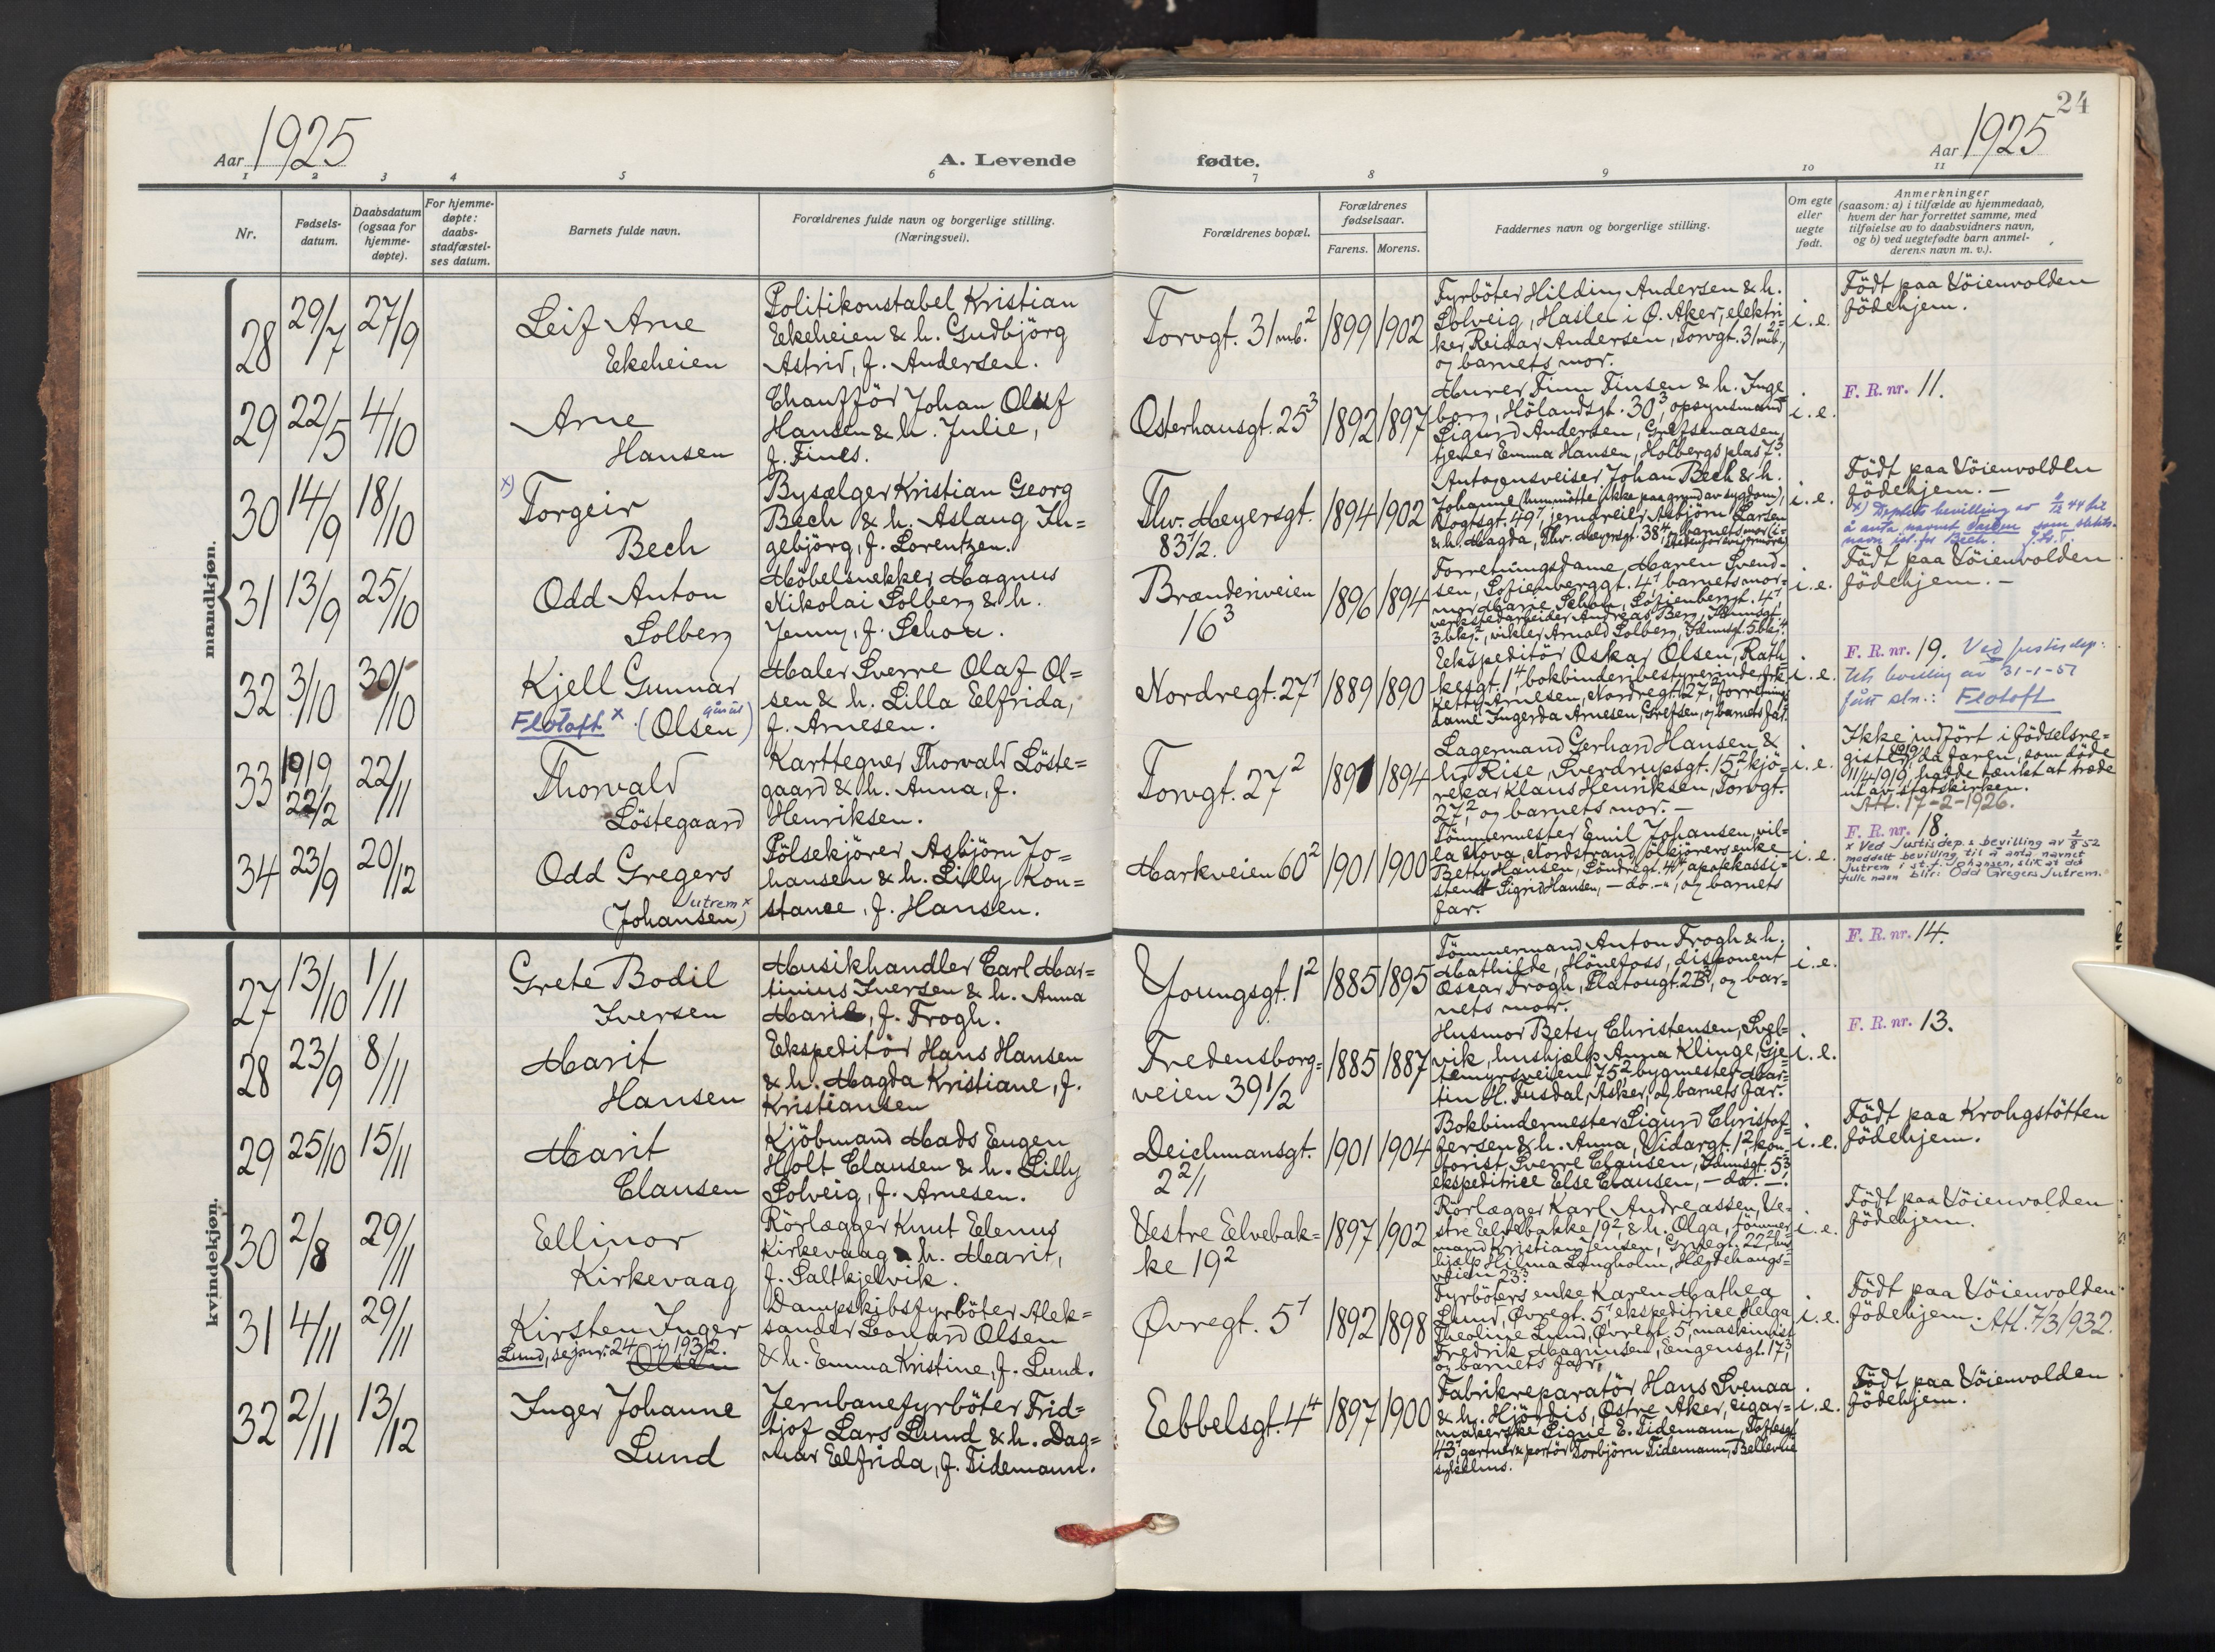 24
Aar 1925
A. Levende
fødte.
Aar 1925
1 2 3 4 5 6 7 8 9 10 11
Nr.
Fødsels-
datum.
Daabsdatum
(ogsaa for
hjemme-
døpte).
For hjemme-
døpte:
daabs-
stadfæstel-
ses datum.
Barnets fulde navn.
Forældrenes fulde navn og borgerlige stilling.
(Næringsvei).
Forældrenes bopæl.
Forældrenes
fødselsaar.
Farens. Morens.
Faddernes navn og borgerlige stilling.
Om egte
eller
uegte
født.
Anmerkninger
(saasom: a) i tilfælde av hjemmedaab,
hvem der har forrettet samme, med
tilføielse av to daabsvidners navn,
og b) ved uegtefødte barn anmel-
derens navn m. v.).
mandkjøn.
28 29/7 27/9
Leif Arne
Ekeheien
Politikonstabel Kristian
Ekeheien & h. Gudbjörg
Astrid, f. Andersen.
Torvgt. 31 mb.2
1899 1902
Fyrböter Hilding Andersen & h.
Solveig, Hasle i Ø. Aker, elektri=
ker Reidar Andersen, Torvgt. 31 mb.2,
og barnets mor.
i. e.
Födt paa Vöienvolden
födehjem.
29 22/5 4/10
Arne
Hansen
Chaufför Johan Oluf
Hansen & h. Julie,
f. Fines.
Osterhausgt. 25 3
1892 1897
Murer Finn Finsen & h. Inge=
borg, Hölandsgt. 30 3, opsynsmand
Sigurd Andersen, Grefsenaasen,
tjener Emma Hansen, Holbergs plas 7 3.
i. e.
F. R. nr. 11.
30 14/9 18/10
x) Torgeir
Bech
Bysælger Kristian Georg
Bech & h. Aslaug In=
gebjörg, f. Lorentzen.
Thv. Meyersgt.
83 1/2.
1894 1902
Autogensveiser Johan Bech & h.
Johanne (kun mötte ikke paa grund av sygdom),
Vogtsgt. 49 1, jerndreier Asbjörn Larsen
& h. Magda, Thv. Meyersgt. 38 4, og barnets mor (i
stedenfor svigermora)
i. e.
Födt paa Vöienvolden
födehjem. –
x) Deptets bevilling av 44 til
å anta navnet som slekts-
navn ist. for Bech.
31 13/9 25/10
Odd Anton
Solberg
Möbelsnekker Magnus
Nikolai Solberg & h.
Jenny, f. Schou.
Brænderiveien
16 3
1896 1894
Forretningsdame Maren Svend=
sen, Sofienberggt. 4 1, barnets mor=
mor Marie Schou, Sofienberggt. 4 1,
verkstedarbeider Andreas Berg, Idunnsgt.
3 bkg. 2, vikler Arnold Solberg, Idunnsgt. 5 bkg. 4
i. e.
Födt paa Vöienvolden
födehjem. –
32 3/10 30/10
Kjell Gunnar
Flotoft x. (Olsen)
Maler Sverre Olaf Ol=
sen & h. Lilla Elfrida,
f. Arnesen.
Nordregt. 27 1
1889 1890
Ekspeditör Oskar Olsen, Rath=
kesgt. 1 4, bokbinderibestyrerinde frk.
Ketty Arnesen, Nordregt. 27 2, forretnings=
dame Ingerda Arnesen, Grefsen, og barnets far.
i. e.
F. R. nr. 19. Ved justisdep:
ets bevilling av 31-1-57
fått sln.: Flotoft
33 1919 22/2 22/11
Thorvald
Löstegaard
Karttegner Thorvald Löste=
gaard & h. Anna, f.
Henriksen.
Torvgt. 27 2
1891 1894
Lagermand Gerhard Hansen &
h. Rise, Sverdrupsgt. 15 2, kjö=
rekar Klaus Henriksen, Torvgt.
27 2, og barnets mor. –
i. e.
Ikke indfört i födselsre=
gister 1919, da faren, som döde
11/4 1919, hadde tænkt at træde
ut av statskirken.
Att. 17-2-1926.
34 23/9 20/12
Odd Gregers
Jutrem x
(Johansen)
Pölsekjörer Asbjörn Jo=
hansen & h. Lilly Kon=
stance, f. Hansen.
Markveien 60 2
1901 1900
Tömmermester Emil Johansen, vil=
la Nova, Nordstrand, ölkjörers enke
Betty Hansen, Söndregt. 4 4, apotekassi=
stent Sigrid Hansen, – do. –, og barnets
far.
i. e.
F. R. nr. 18.
x Ved Justisdep.s bevilling av 2/8 52
meddelt bevilling til å anta navnet
Jutrem i st. f. Johansen, slik at det
fulle navn blir: Odd Gregers Jutrem.
kvindekjøn.
27 13/10 1/11
Grete Bodil
Iversen
Musikhandler Carl Mar=
tinius Iversen & h. Anna
Marie, f. Frogh.
Youngsgt. 1 2
1885 1895
Tömmermand Anton Frogh & h.
Mathilde, Hönefoss, disponent
Oscar Frogh, Platougt. 2B 3, og bar=
nets mor.
i. e.
F. R. nr. 14.
28 23/9 8/11
Marit
Hansen
Ekspeditör Hans Hansen
& h. Magda Kristiane, f.
Kristiansen
Fredensborg=
veien 39 1/2
1885 1887
Husmor Betsy Christensen, Svel=
vik, hushjælp Anna Klinge, Gje=
temyrsveien 75 2, bygmester Mar=
tin H. Tusdal, Asker, og barnets far.
i. e.
F. R. nr. 13.
29 25/10 15/11
Marit
Clausen
Kjöbmand Mads Eugen
Holt Clausen & h. Lilly
Solveig, f. Arnesen.
Deichmansgt.
2 2/1
1901 1904
Bokbindermester Sigurd Christof=
fersen & h. Anna, Vidargt. 1 2, kon=
torist Sverre Clausen, Idunnsgt. 5 3,
ekspeditrice Else Clausen, – do. –.
i. e.
Födt paa Krohgstötten
födehjem.
30 2/8 29/11
Ellinor
Kirkevaag
Rörlægger Knut Elenus
Kirkevaag & h. Marit,
f. Saltkjelvik.
Vestre Elvebak=
ke 19 2
1897 1902
Rörlægger Karl Andreassen, Ve=
stre Elvebakke 19 2, & h. Olga, tömmer=
mand Kristian Jensen, 22 2, hus=
hjælp Hilma Langholm, Hægdehaugs=
veien 23 3.
i. e.
Födt paa Vöienvolden
födehjem.
31 4/11 29/11
Kirsten Inger
Lund, se jnr. 24 i 1932.
Olsen
Dampskibsfyrböter Alek=
sander Leonard Olsen
& h. Emma Kristine, f. Lund.
Øvregt. 5 1
1892 1898
Fyrböters enke Karen Mathea
Lund, Øvregt. 5 1, ekspeditrice Helga
Theoline Lund, Øvregt. 5 1, maskinist
Fredrik Magnussen, Eugensgt. 17 3,
og barnets far.
i. e.
Födt paa Vöienvolden
födehjem. Att. 7/3 1932.
32 2/11 13/12
Inger Johanne
Lund
Jernbanefyrböter Frid=
tjof Lars Lund & h. Dag=
mar Elfrida, f. Tidemann.
Ebbelsgt. 4 4
1897 1900
Fabrikreparatör Hans Svenaa
& h. Hjördis, Østre Aker, cigar=
makerske Signe E. Tidemann, Toftesgt.
43 1, gartner & portör Torbjörn Tidemann, Bellevue
sykehus.
i. e.
Födt paa Vöienvolden
födehjem.